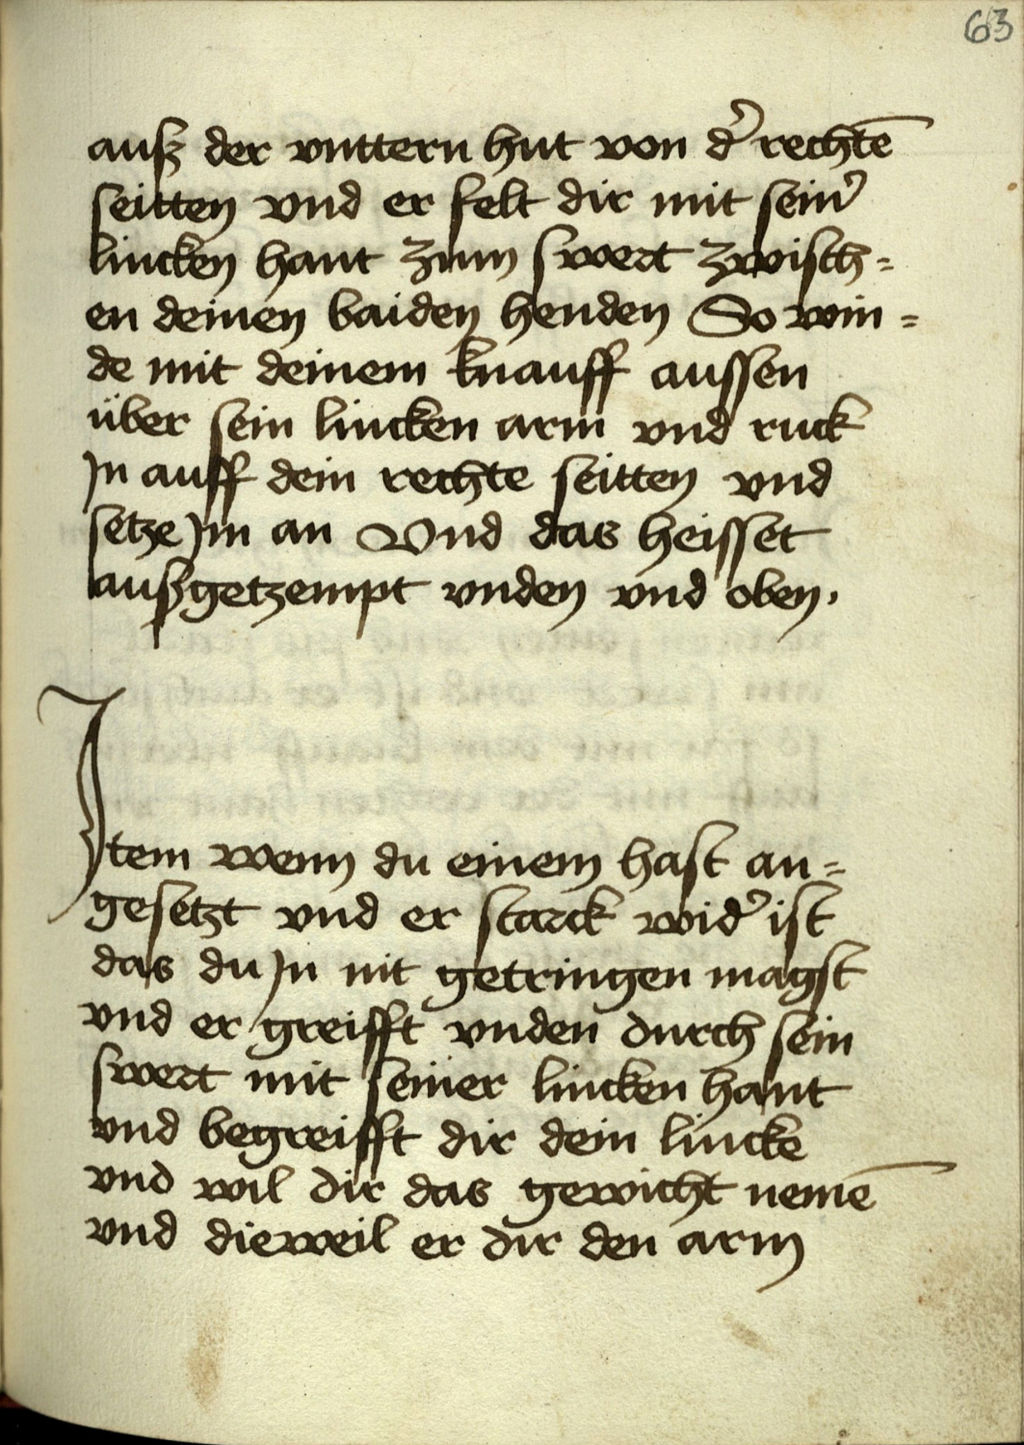 63
auß der vnttern hut von d̉ rechtē
seitten vnd er felt dir mit sein̉
lincken hant zum swert zwisch=
en deinen baiden henden So win=
de mit deinem knauff aussen
über sein lincken arm vnd ruck
Jn auff dein rechte seitten vnd
setze Jm an Vnd das heisset
außgetzempt vnden vnd oben.
Jtem wenn du einem hast an=
gesetzt vnd er starck wid̉ ist
das du Jn nit getringen magst
vnd er greifft vnden durch sein
swert mit seiner lincken hant
vnd begreifft dir dein lincke
vnd wil dir das gewicht nemē
vnd dieweil er dir den arm